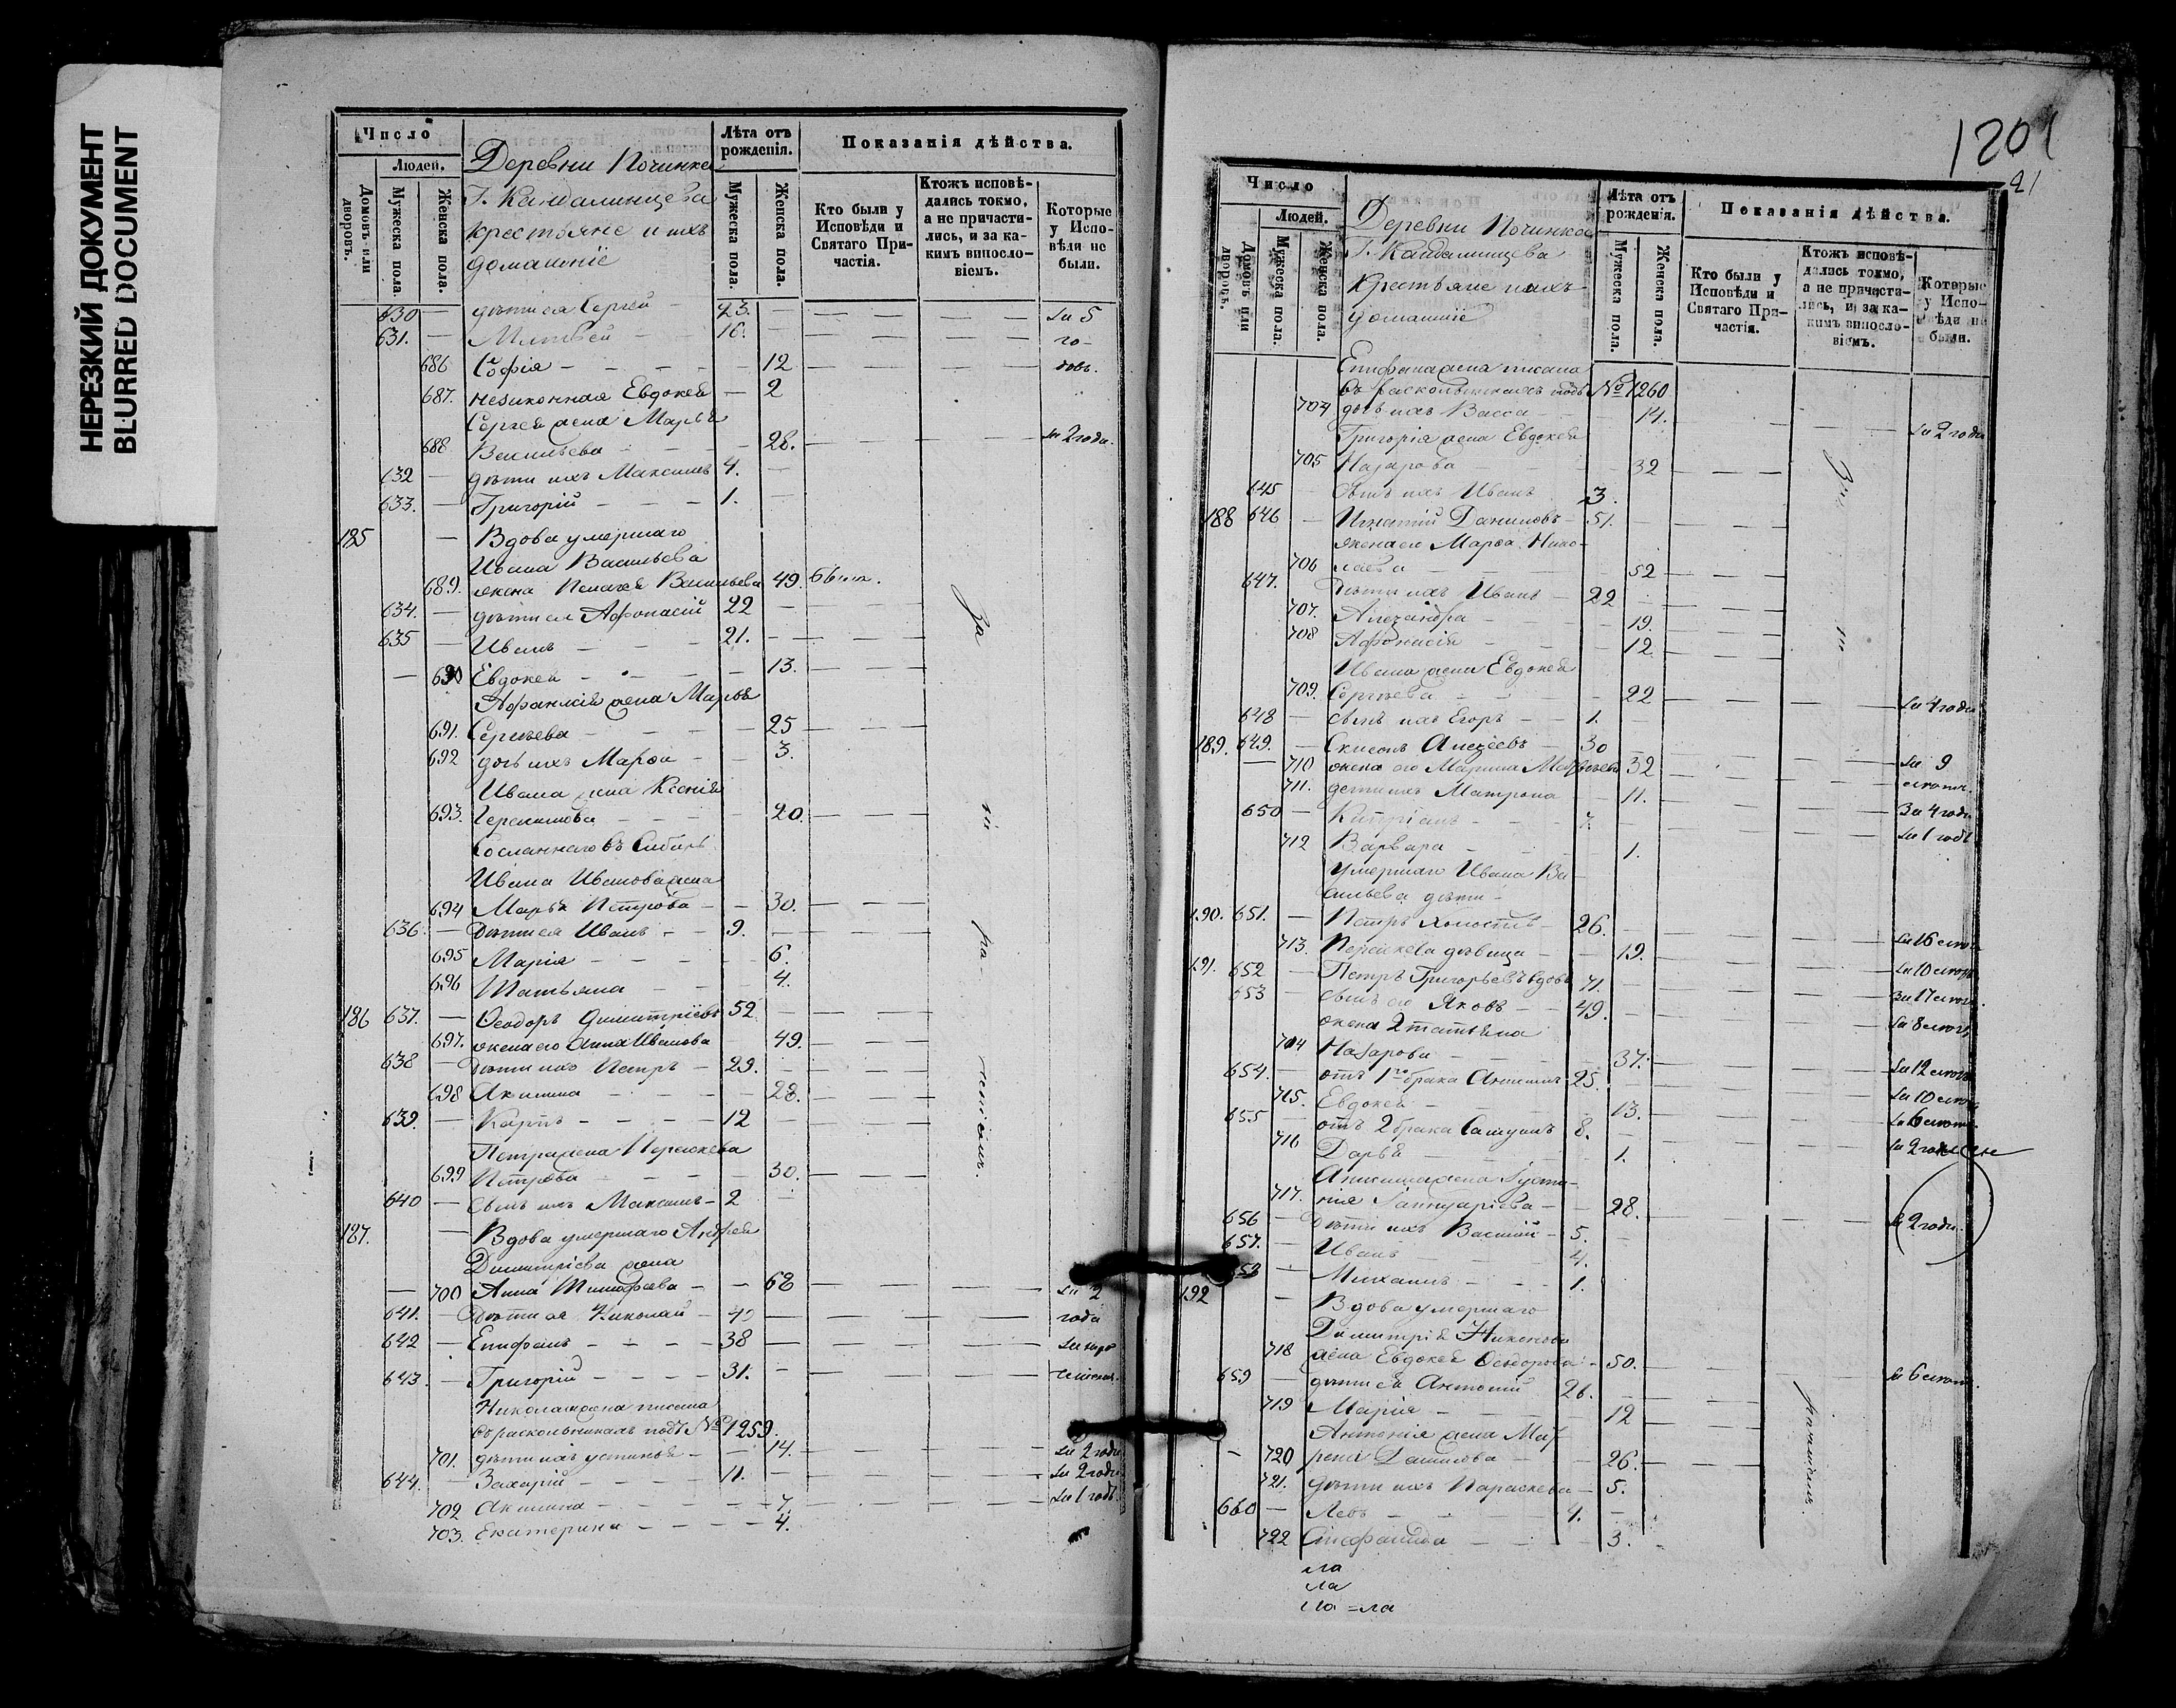 НЕРЕЗКИЙ ДОКУМЕНТ
BLURRED DOCUMENT
Число
Людей.
Домовъ или дворовъ.
Мужеска пола.
Женска пола.
Деревни Починка
Г. Кандалинцева
крестьяне и ихъ
домашніе
Лѣта отъ рожденія.
Мужеска пола.
Женска пола.
Показанія дѣйства.
Кто были у Исповѣди и Святаго Причастія.
Ктожъ исповѣ-
дались токмо,
а не причасти-
лись, и за ка-
кимъ виносло-
віемъ.
Которые
у Испо-
вѣди не
были.
630 — дѣти ея Сергей — 23. — За 5
631. — Матвей — 16. — го-
686 Софія — 12 — довъ.
687. незаконная Евдокея — 2
Сергея жена Марья
688 Васильева — 28. — за 2 года.
632 — дѣти ихъ Максимъ 4. —
633. — Григорій — 1. —
185 — Вдова умершаго
Ивана Васильева
689. жена Пелагея Васильева 49.
634. — дѣти ея Афонасій 22 —
635 — Иванъ — 21. —
— 690 Евдокея — 13.
Афанасія жена Марья
691. Сергеева — 25
692 дочь ихъ Марфа — 3.
Ивана жена Ксенія
693. Герасимова — 20.
Сосланнаго въ Сибирь
Ивана Иванова жена
694 Марья Петрова — 30.
636. — Дѣти ея Иванъ — 9.
695 Марія — 6.
696 Татьяна — 4.
186 637. — Ѳеодоръ Димитріевъ 52
697. жена его Анна Иванова — 49.
638 — Дѣти ихъ Петръ — 29.
698 Акилина — 28.
639. — Карпъ — 12
Петра жена Параскева
699 Петрова — 30.
640 — сынъ ихъ Максимъ — 2
187. — Вдова умершаго Андрея
Димитріева жена
— 700 Анна Тимофѣева — 68 — за 2
641. — Дѣти ея Николай — 40 — года
642 — Епифанъ — 38 —
643. — Григорій — 31. —
Николая жена писана
въ раскольникахъ подъ № 1259.
701. дѣти ихъ Устинья — 14. — за 2 года
644. — Захарій — 11. — за 2 года
702 Акилина — 7. — за 1 годъ.
703. Екатерина — 4.
За
не
ра-
1201
21
Число
Людей.
Домовъ или дворовъ.
Мужеска пола.
Женска пола.
Деревни Починка
Г. Кандалинцева
Крестьяне и ихъ
домашніе
Лѣта отъ рожденія.
Мужеска пола.
Женска пола.
Показанія дѣйства.
Кто были у Исповѣди и Святаго Причастія.
Ктожъ исповѣ-
дались токмо,
а не причасти-
лись, и за ка-
кимъ виносло-
віемъ.
Которые
у Испо-
вѣди не
были.
Епифана жена писана
въ раскольникахъ подъ № 1260
704 дочь ихъ Васса — 14. — за 2 года
Григорія жена Евдокея
705 Назарова — 32
645 — сынъ ихъ Иванъ 3.
188 646 — Игнатій Даниловъ — 51.
жена его Марфа Нико-
706 лаева — 52
647. Дѣти ихъ Иванъ — 22
707. Александра — 19.
708 Афонасія — 12
Ивана жена Евдокея
709. Сергѣева — 22 — за 4 года
648 — сынъ ихъ Егоръ — 1.
189. 649. — Алексѣевъ — 30
— 710 жена его Марина Матвѣева 32 — за 9
711. дети ихъ Матрона — 11.
650 — Кипріанъ — 7. — За 4 года
712 Варвара — 1. — за 1 годъ
умершаго Ивана Ва-
сильева дѣти —
190. 651. — Петръ холостъ — 26.
713. Параскева дѣвица — 19.
191. 652 — Петръ Григорьевъ вдовъ 71.
653 — сынъ его Яковъ — 49.
жена 2 Татьяна
704 Назарова — 37.
654. — отъ 1го брака Анисимъ 25.
715. Евдокея — 13.
655 отъ 2 брака 8.
716 Дарья — 1.
Анисима жена Іуста-
717. нія Іаннуаріева — 28. — за 2 года.
656 — дѣти ихъ Василій — 5.
657. — Иванъ — 4.
658 — Михаилъ — 1.
192 — Вдова умершаго
Димитрія
718 жена Евдокея Ѳеодорова — 50.
659 — дѣти ея Антоній 26.
719 Марія — 12
Антонія жена Мат-
— 720 рена Данилова — 26.
721. дѣти ихъ Параскева — 5.
660 — Левъ — 4.
722 — 3.
ла
ла
ла = ла
За
не